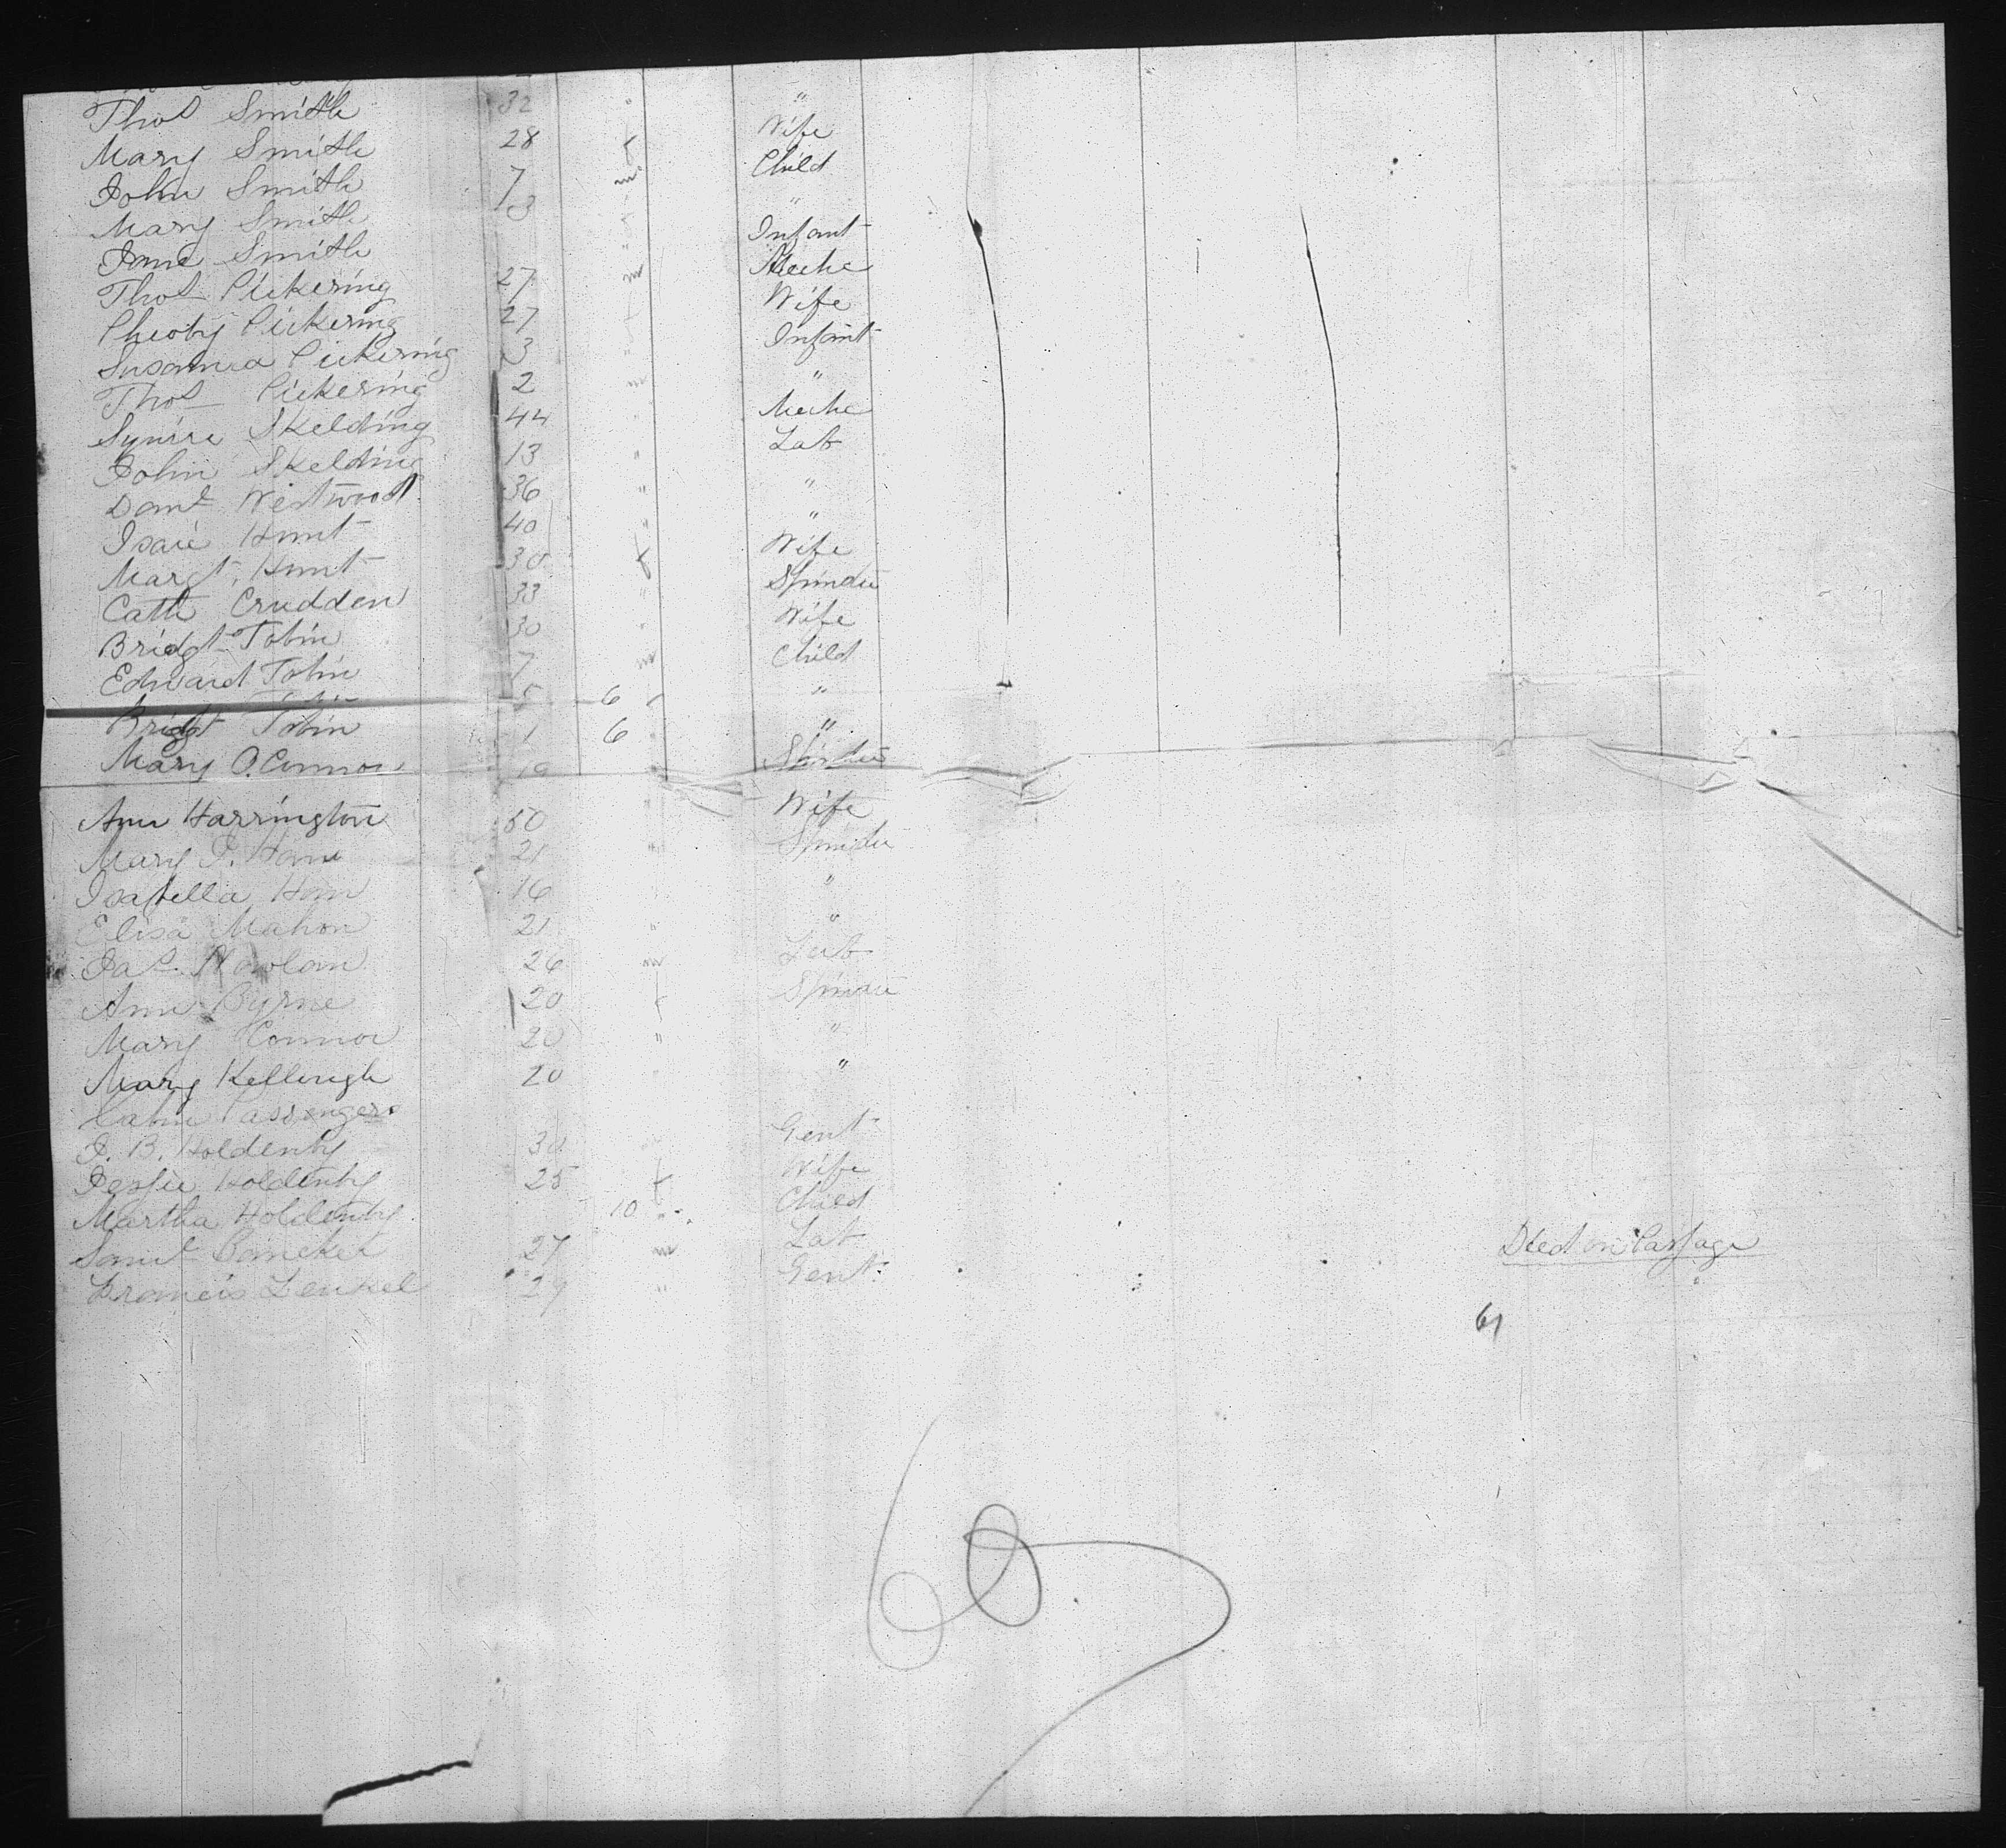 Thos Smith 32 " "
Mary Smith 28 f Wife
John Smith 7 m Child
Mary Smith 3 "
Jane Smith Infant
Thos Pickering 27 m Meche
Pheoby Pickering 27 f Wife
Susanna Pickering 3 Infant
Thos Pickering 2 m "
Squire Skelding 44 " Meche
John Skelding 13 " Lab
Danl Westwood 36 " "
Isaic Hunt 40 " "
Margt. Hunt 30 f Wife
Cath Crudden 33 " Spinster
Bridgt Tobin 30 " Wife
Edward Tobin 7 m Child
Tobin 5 6 "
Bridgt Tobin 1 6 " "
Mary O.Connor 19 Spinster
Ann Harrington 50 " Wife
Mary J. 21 " Spinster
Isabella 16 "
Elisa Mahon 21 " "
Jas. Nowlan 26 m Lab
Ann Byrne 20 f Spinster
Mary Connor 20 " "
Mary 20 "
Cabin Passengers
J. B. Holdenby 30 Gent
Jessie Holdenby 25 f Wife
Martha Holdenby 10 " Child
Saml 27 m Lab Died on Passage
Francis 29 " Gent
61
60